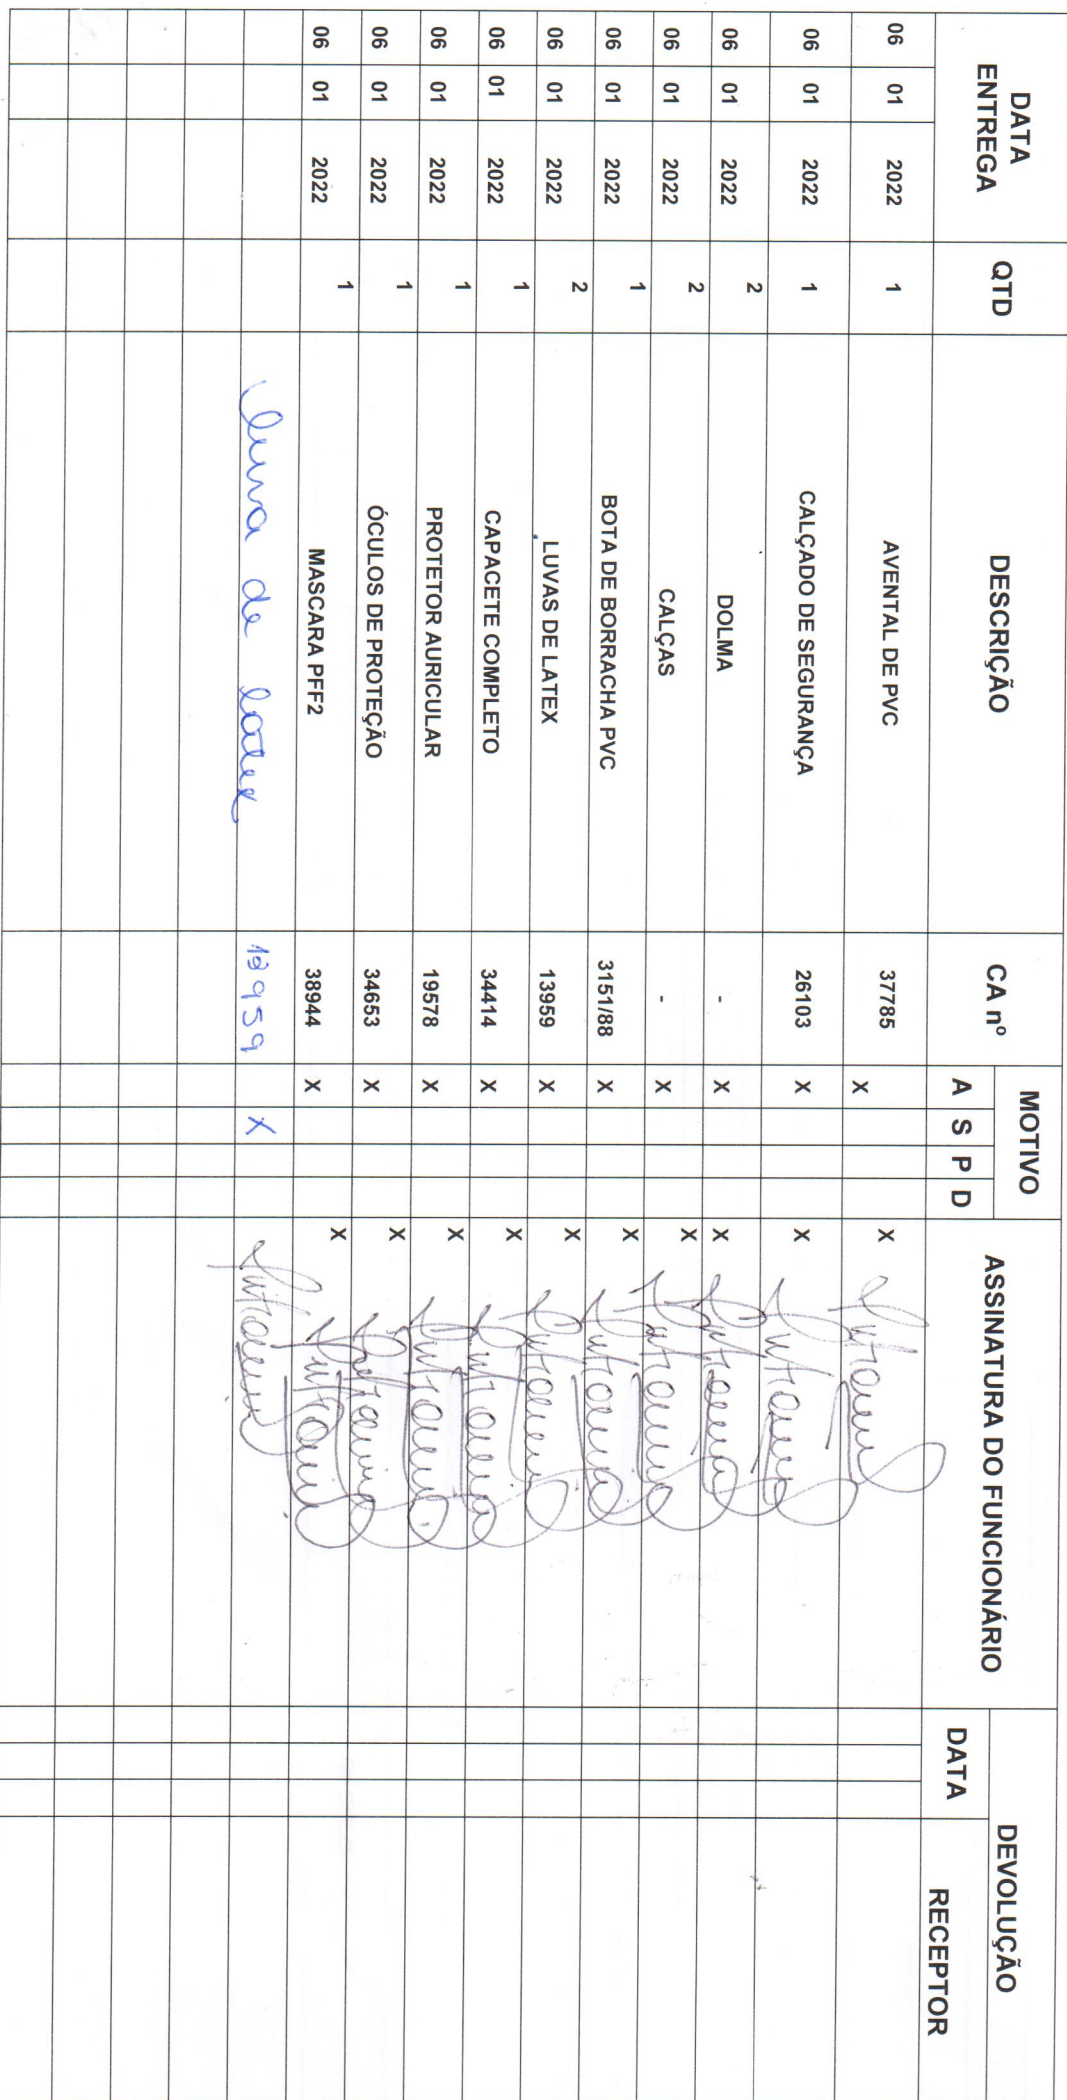 DATA ENTREGA QTD DESCRIÇÃO CA nº MOTIVO ASSINATURA DO FUNCIONÁRIO DEVOLUÇÃO
A S P D DATA RECEPTOR
06 01 2022 1 AVENTAL DE PVC 37785 X X
06 01 2022 1 CALÇADO DE SEGURANÇA 26103 X X
06 01 2022 2 DOLMA - X X
06 01 2022 2 CALÇAS - X X
06 01 2022 1 BOTA DE BORRACHA PVC 3151/88 X X
06 01 2022 2 LUVAS DE LATEX 13959 X X
06 01 2022 1 CAPACETE COMPLETO 34414 X X
06 01 2022 1 PROTETOR AURICULAR 19578 X X
06 01 2022 1 ÓCULOS DE PROTEÇÃO 34653 X X
06 01 2022 1 MASCARA PFF2 38944 X X
luva de latex 13959 X